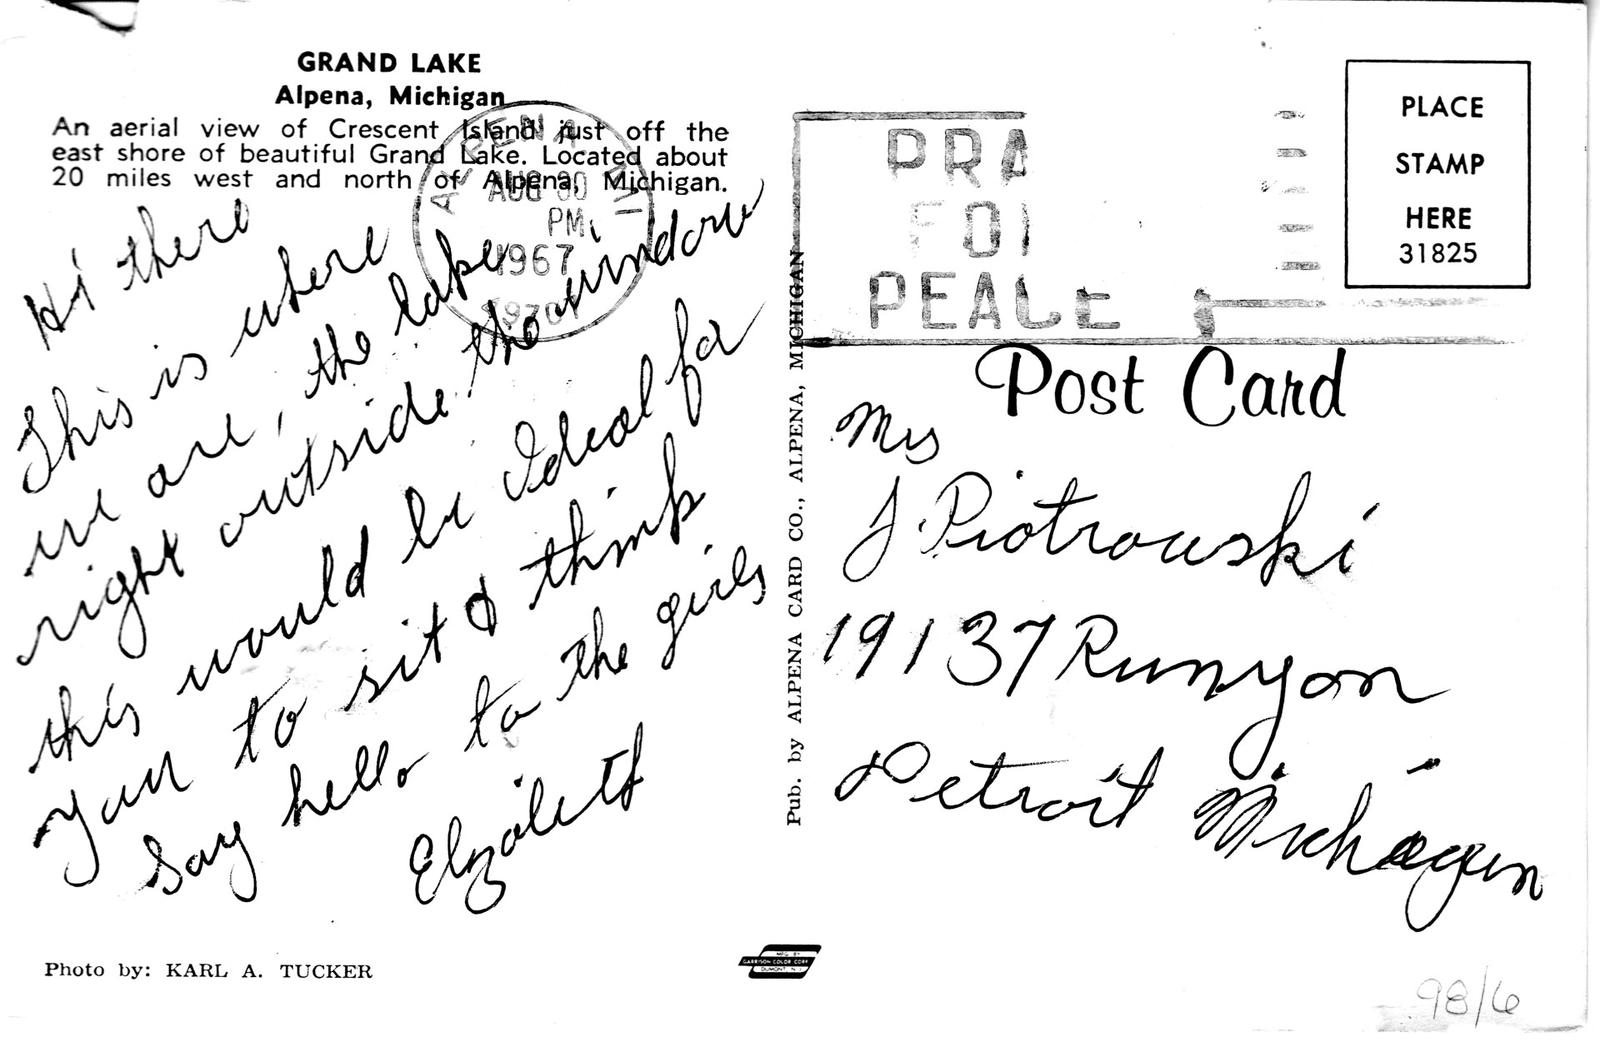 GRAND LAKE
Alpena, Michigan
An aerial view of Crescent Island just off the
east shore of beautiful Grand Lake. Located about
20 miles west and north of Alpena, Michigan.
ALPENA
AUG 30
PM
1967
Hi there
This is where
we are, the lake
right outside the window
this would be Ideal for
you to sit & think
Say hello to the girls
Elizabeth
Photo by: KARL A. TUCKER
Pub. by ALPENA CARD CO., ALPENA, MICHIGAN
MFG. BY
GARRISON COLOR CORP
DUMONT, N.J.
PRA
FO
PEACE
PLACE
STAMP
HERE
31825
Post Card
Mrs
J Piotrowski
19137 Runyon
Detroit Michigan
98/6